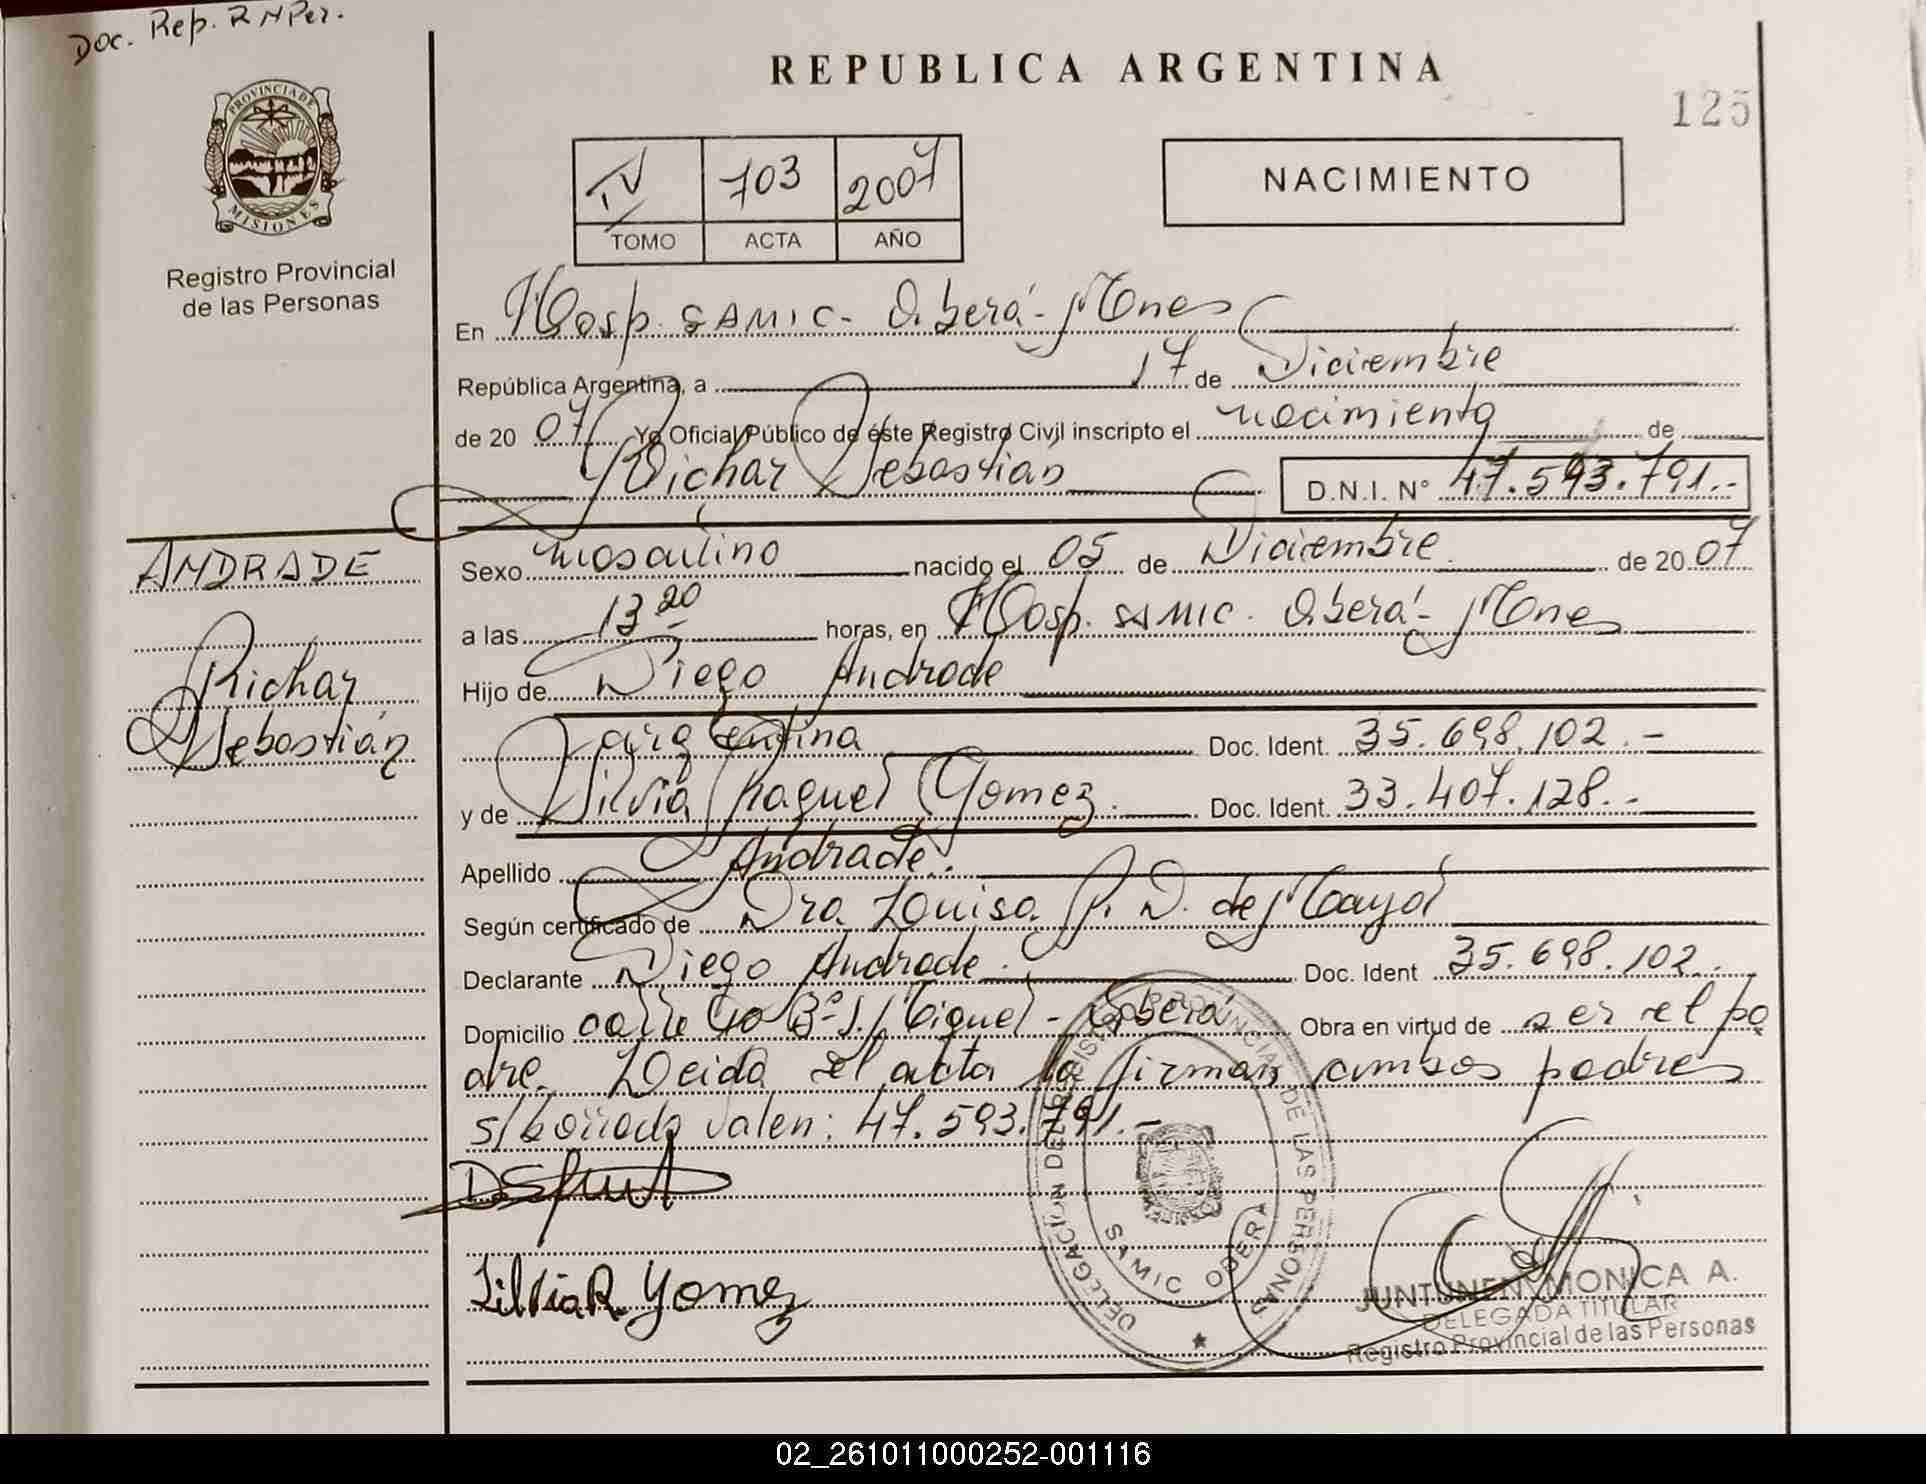 Doc. Rep. RNPer.
REPUBLICA ARGENTINA
125
PROVINCIA DE
MISIONES
Registro Provincial
de las Personas
IV 703 2007
TOMO ACTA AÑO
NACIMIENTO
En Hosp. SAMIC - Oberá - Mnes
República Argentina, a 17 de Diciembre
de 20 07 Yo Oficial Público de éste Registro Civil inscripto el nacimiento de
Richar Sebastián D.N.I. N° 47.593.791.-
ANDRADE
Richar
Sebastián
Sexo masculino nacido el 05 de Diciembre de 20 07
a las 13 20 horas, en Hosp. SAMIC. Oberá - Mnes
Hijo de Diego Andrade
argentina Doc. Ident. 35.698.102.-
y de Silvia Raquel Gomez. Doc. Ident. 33.407.128.-
Apellido Andrade.
Según certificado de Dra. Louisa P. D. de Mayol
Declarante Diego Andrade. Doc. Ident 35.698.102.
Domicilio calle 40 Bº S. Miguel - Oberá Obra en virtud de ser el pa
dre. Leida el acta la firman ambos padres
s/borrado valen: 47.593.791.-
Silvia R. Gomez
DELEGACION DE REGISTRO PROVINCIAL DE LAS PERSONAS
SAMIC OBERA
JUNTUNEN MONICA A.
DELEGADA TITULAR
Registro Provincial de las Personas
02_261011000252-001116